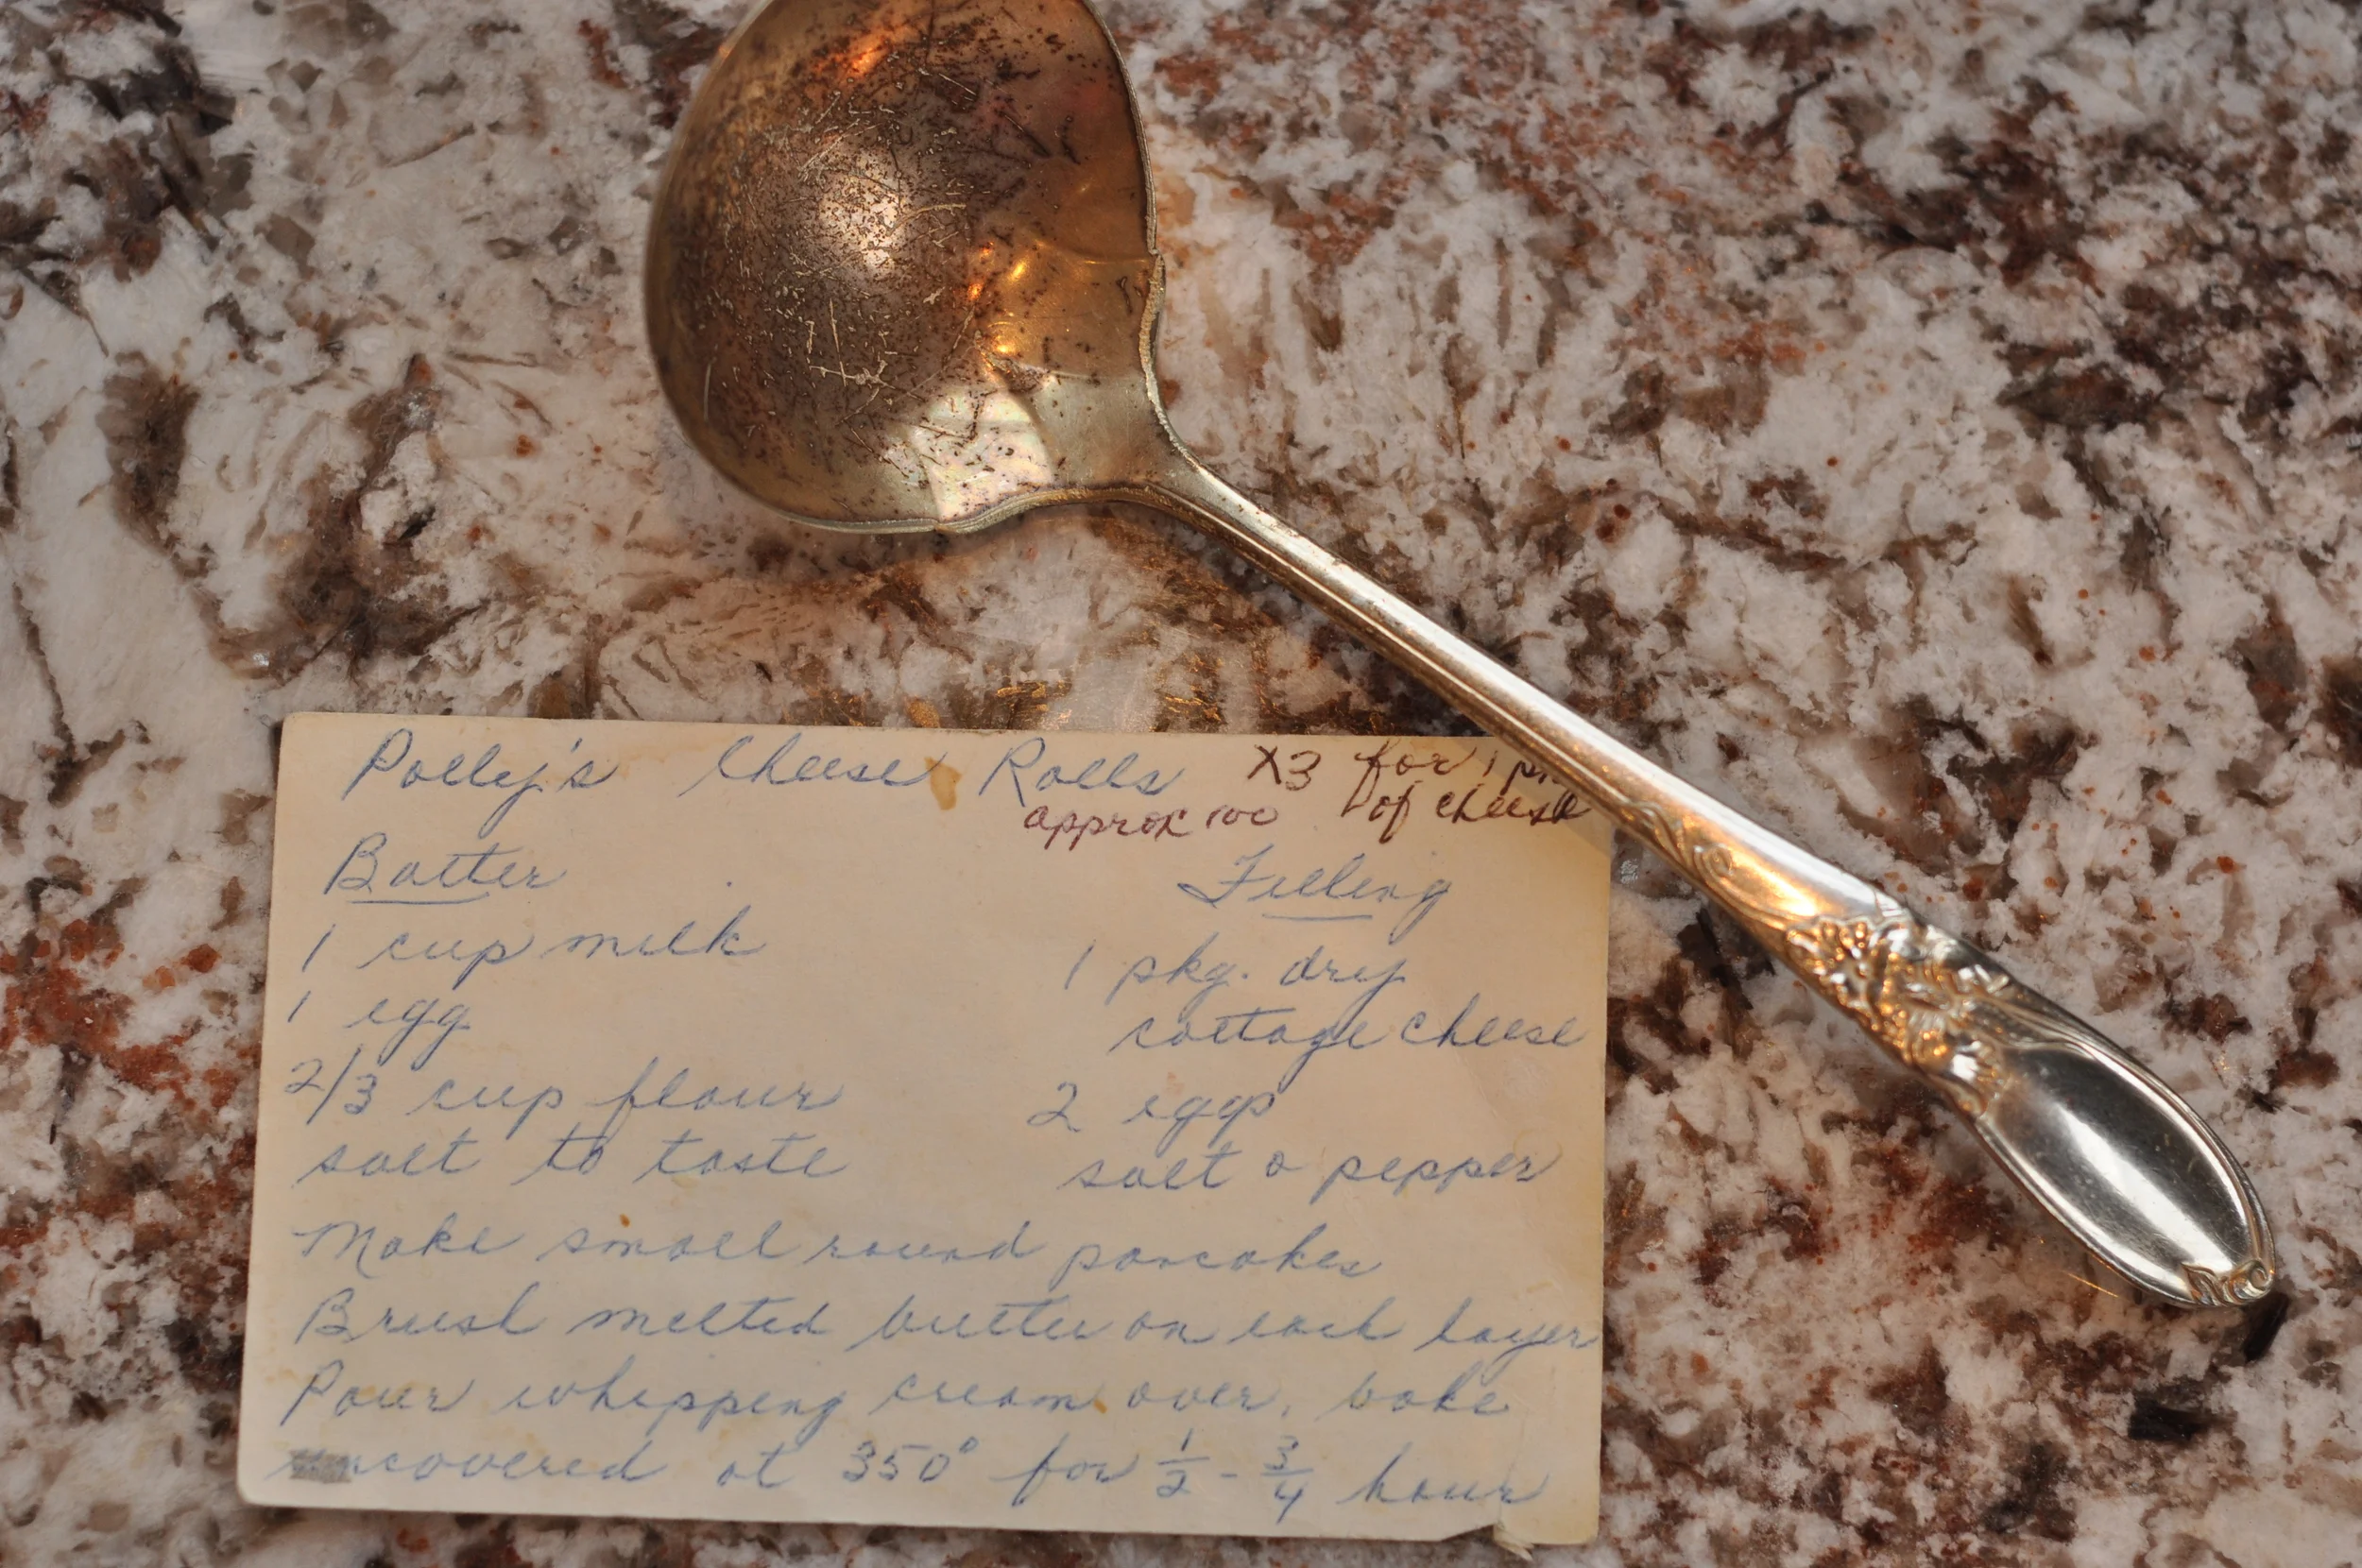 Polly's Cheese Rolls X3 for 1
approx 100 of cheese
Batter
Filling
1 cup milk
1 egg
2/3 cup flour
salt to taste
1 pkg. dry
cottage cheese
2 eggs
salt & pepper
Make small round pancakes
Brush melted butter on each layer
Pour whipping cream over, bake
uncovered at 350° for 1/2 - 3/4 hour